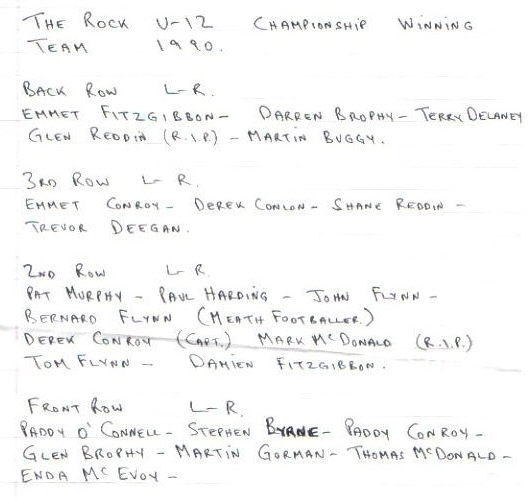 The Rock U-12 Championship Winning
Team 1990.
Back Row L-R.
Emmet Fitzgibbon - Darren Brophy - Terry Delaney
Glen Reddin (R.I.P.) - Martin Buggy.
3rd Row L-R.
Emmet Conroy - Derek Conlon - Shane Reddin -
Trevor Deegan.
2nd Row L-R.
Pat Murphy - Paul Harding - John Flynn -
Bernard Flynn (Meath Footballer.)
Derek Conroy (Capt.) Mark McDonald (R.I.P.)
Tom Flynn - Damien Fitzgibbon.
Front Row L-R.
Paddy O'Connell - Stephen Byrne - Paddy Conroy -
Glen Brophy - Martin Gorman - Thomas McDonald -
Enda McEvoy -